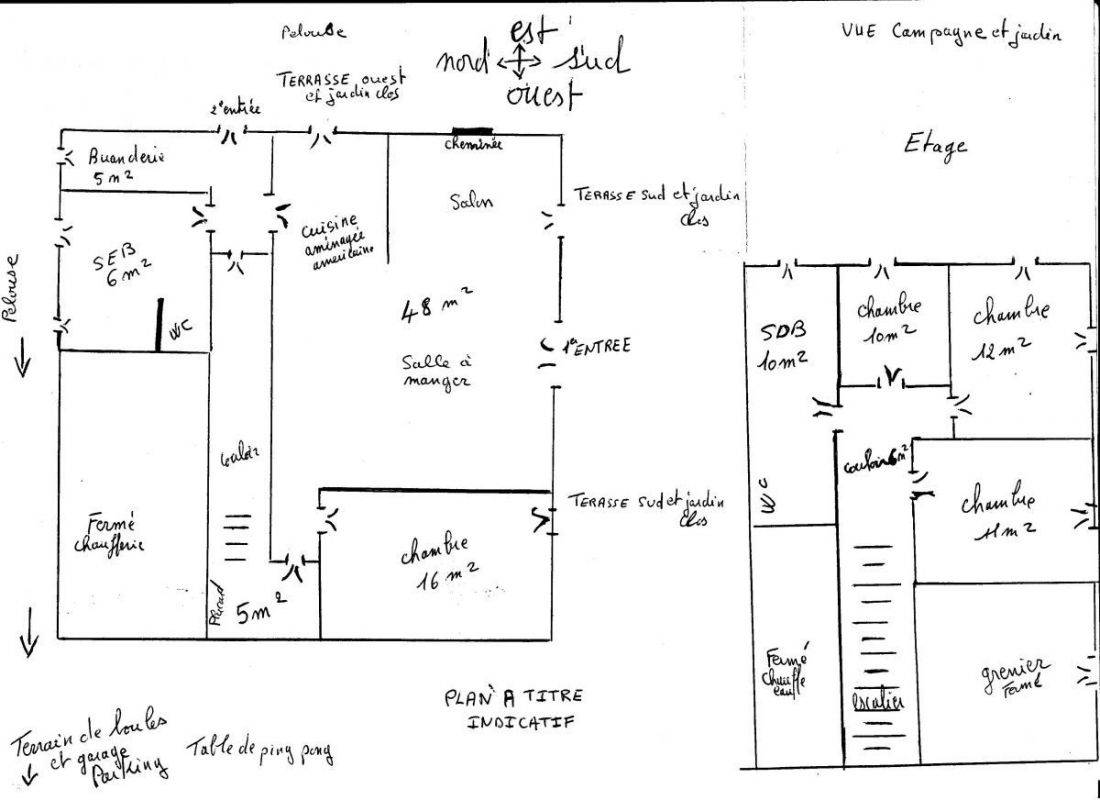 Pelouse
est
nord sud
ouest
TERRASSE ouest
et jardin clos
2e entrée
Buanderie
5 m²
cheminée
Salon
TERASSE Sud et jardin
clos
cuisine
aménagée
americaine
SEB
6 m²
WC
Pelouse
48 m²
1e ENTREE
Salle à
manger
TERASSE Sud et jardin
clos
Fermé
chaufferie
chambre
16 m²
Placard
5 m²
PLAN A TITRE
INDICATIF
Terrain de boules
et garage
Parking
Table de ping pong
VUE Campagne et jardin
Etage
SDB
10 m²
chambre
10 m²
chambre
12 m²
couloir 6 m²
WC
chambre
11 m²
Fermé
chauffe
eau
escalier
grenier
Fermé